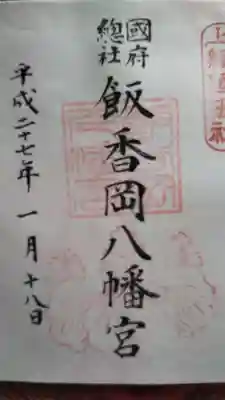 國府
總社
飯香岡八幡宮
平成二十七年 一月十八日